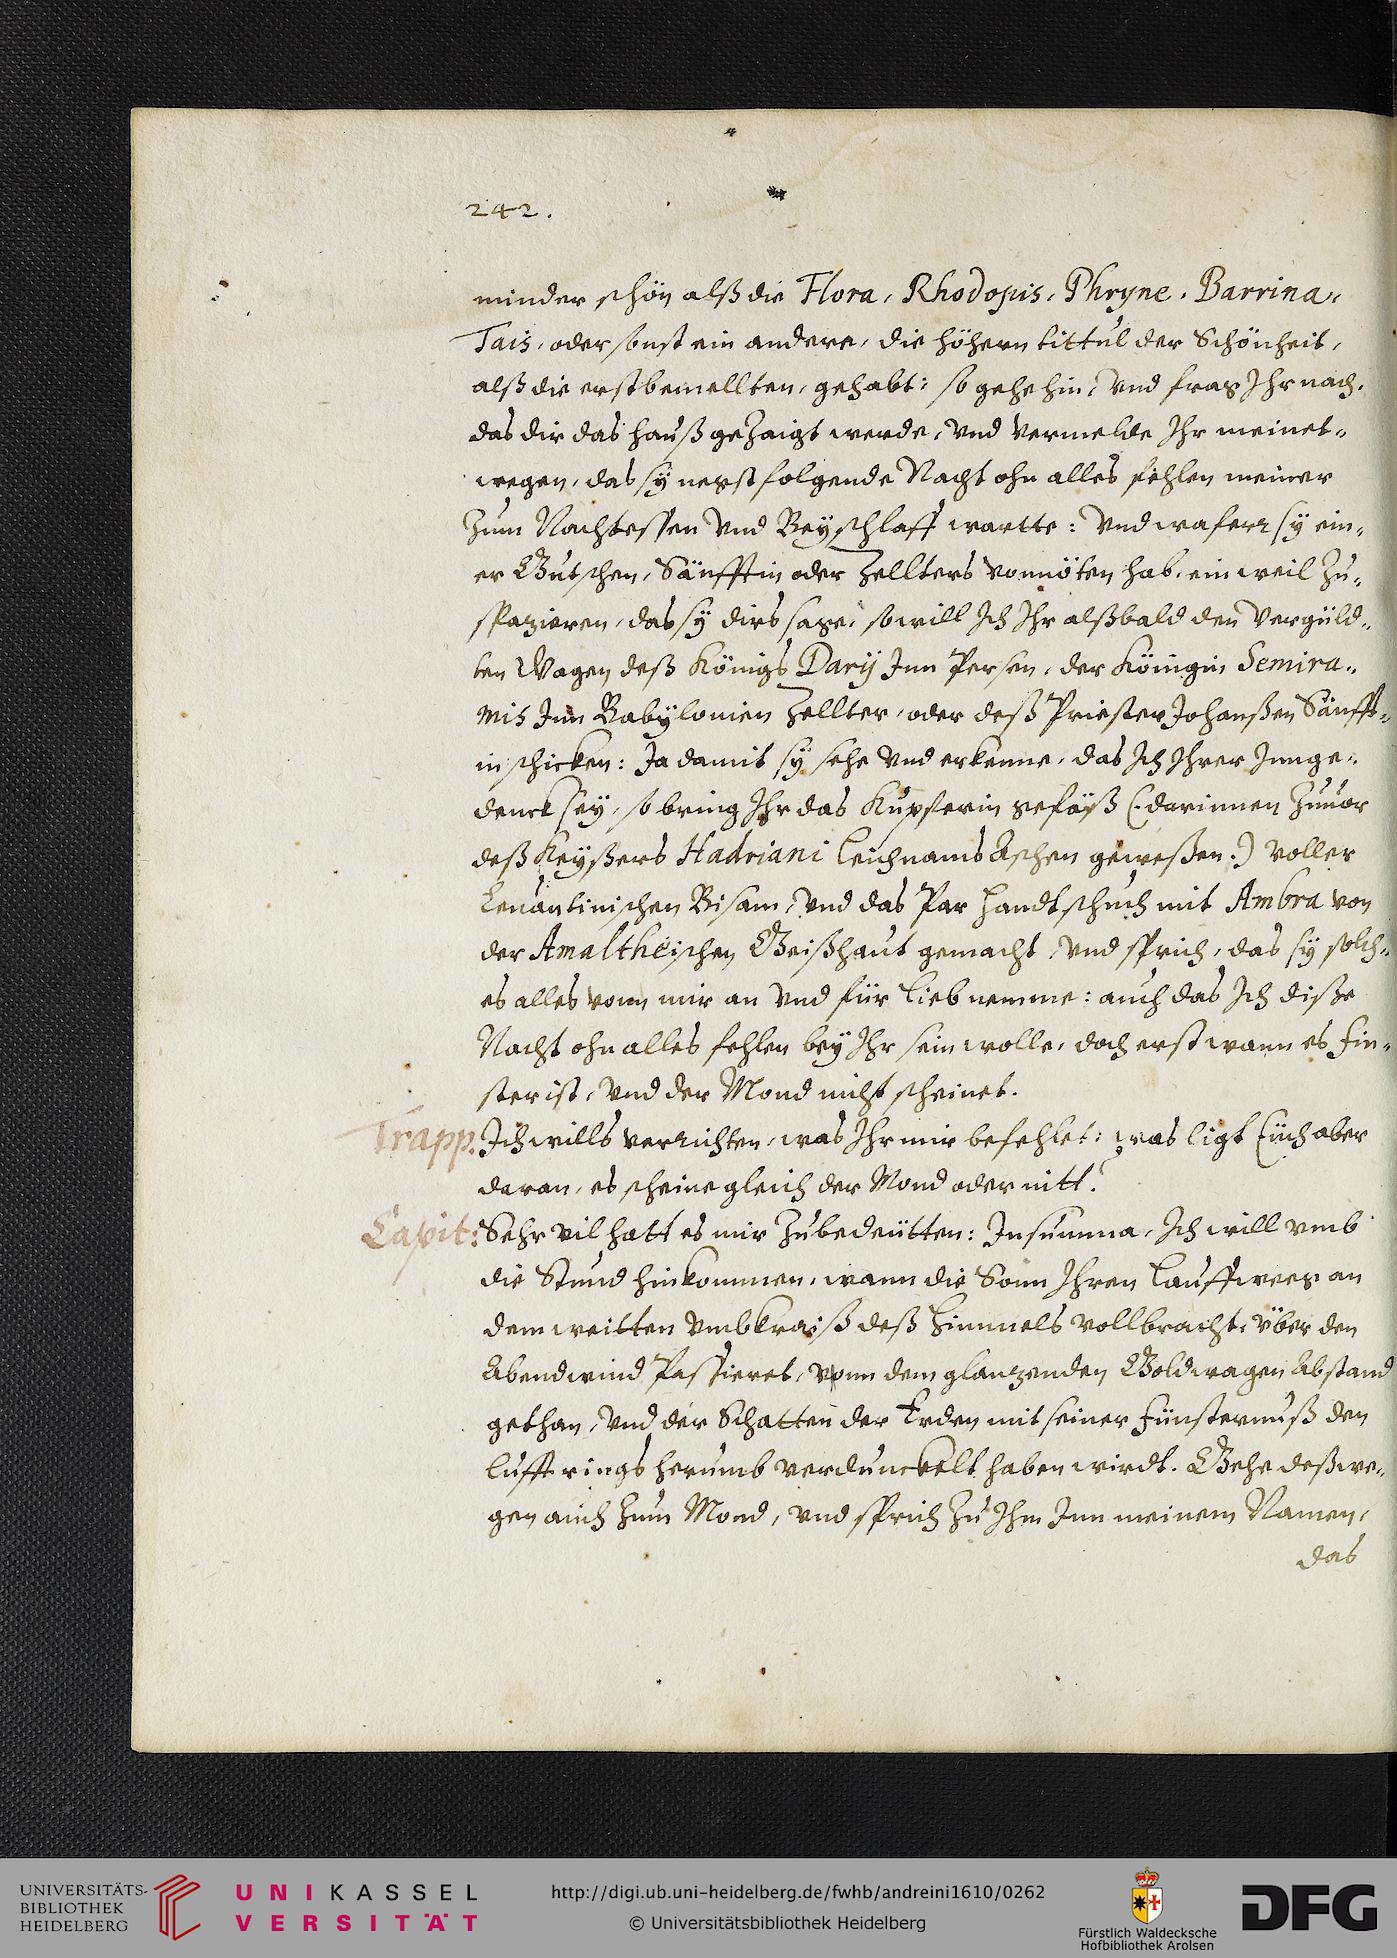 242.
minder schön alß die Flora, Rhodopis, Phryne, Barrina,
Tais, oder sonst ein andere, die höhern tittul der Schönheit,
alß die erstbemellten, gehabt: so gehe hin, vnd frag Ihr nach,
das dir das hauß gezaigt werde, vnd vermelde Ihr meinet-
wegen, das sÿ negst folgende Nacht ohn alles fehlen meiner
zum Nachtessen vnd Beÿschlaff wartte: vnd waferr sÿ ein-
er Gutschen, Sänfftin oder Zellters vonnöten hab, ein weil zu-
spazieren, das sÿ dirs sage, so will Ich Ihr alßbald den vergüld-
ten Wagen deß Königs Darÿ Inn Persen, der Königin Semira-
mis Inn Babÿlonien Zellter, oder deß Priester Johanßen Sänfft-
in schicken: Ja damit sÿ sehe vnd erkenne, das Ich Ihrer Innge-
denck seÿ, so bring Ihr das Kupferin gefäß (: darinnen zuuor
deß Keÿßers Hadriani leichnams Aschen geweßen:) voller
Leuantinischen Bisam, vnd das Par handtschuch mit Ambra von
der Amaltheischen Geißhaut gemacht, vnd sprich, das sÿ solch-
es alles vonn mir an vnd für lieb nemme: auch das Ich diße
Nacht ohn alles fehlen beÿ Ihr sein wolle, doch erst wann es Fin-
ster ist, vnd der Mond nicht scheinet.
Trapp. Ich wills verrichten, was Ihr mir befehlet: was ligt Euch aber
daran, es scheine gleich der Mond oder nitt?
Capit: Sehr vil hatt es mir zubedeütten: In summa, Ich will vmb
die Stund hinkommen, wann die Sonn Ihren lauffweeg an
dem weitten vmbkraiß deß himmels vollbracht, über den
Abendwind Passieret, vonn dem glanzenden Goldwagen Abstand
gethan, vnd der Schatten der Erden mit seiner Fünsternuß den
lufft rings herumb verdunckelt haben wirdt. Gehe deßwe-
gen auch zum Mond, vnd sprich zu Ihm Inn meinem Namen,
das
UNIVERSITÄTS-
BIBLIOTHEK
HEIDELBERG
UNIKASSEL
VERSITÄT
http://digi.ub.uni-heidelberg.de/fwhb/andreini1610/0262
© Universitätsbibliothek Heidelberg
Fürstlich Waldecksche
Hofbibliothek Arolsen
DFG